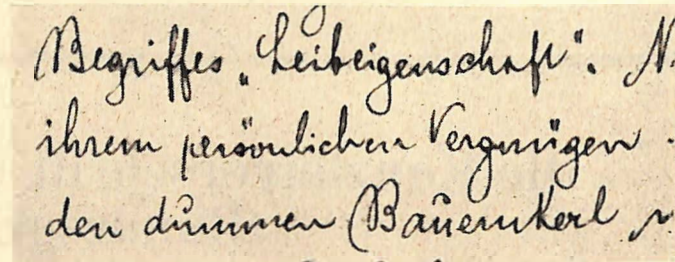 Begriffes „Leibeigenschaft“. N
ihrem persönlichen Vergnügen
den dummen Bauernkerl